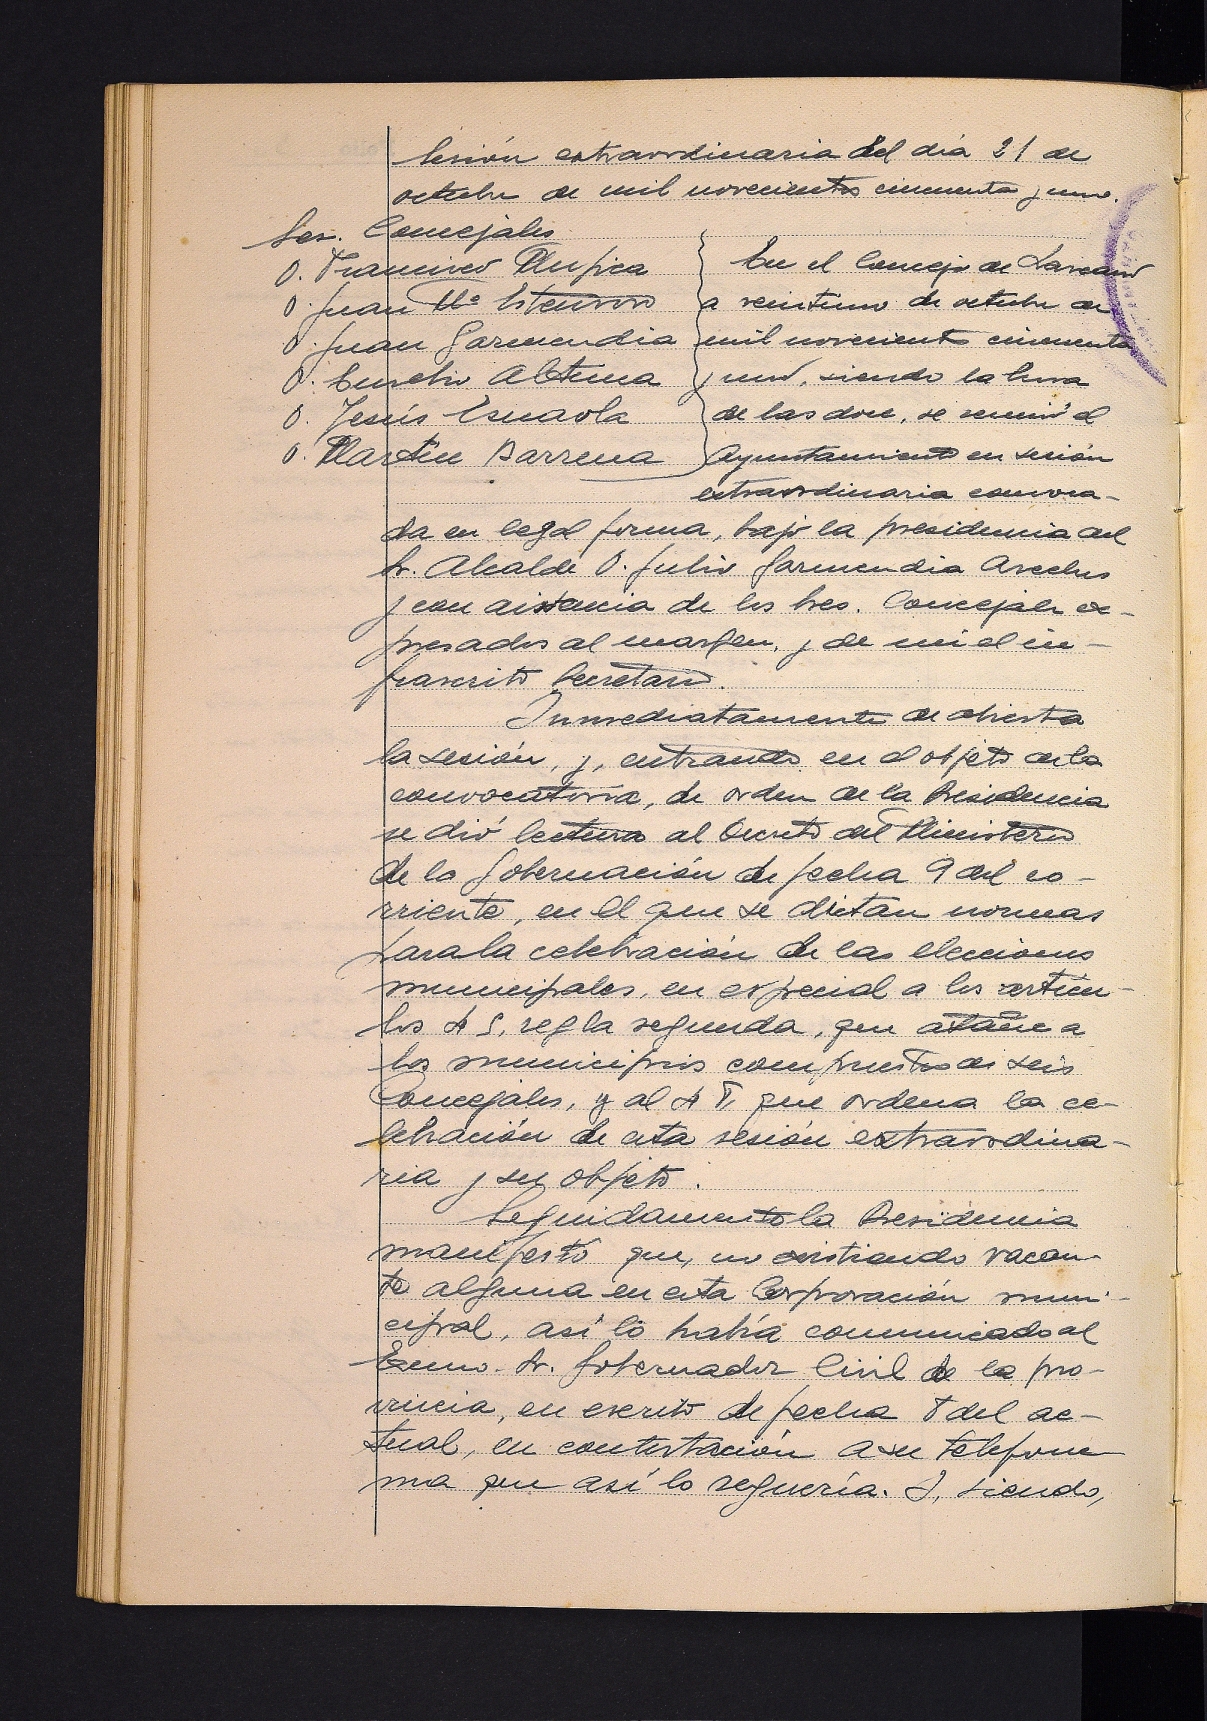 Sesión extraordinaria del día 21 de
octubre de mil novecientos cincuenta y uno.
Sres. Concejales
D. Francisco Mujica
D. Juan Mª Estensoro
D. Juan Garmendia
D. Eusebio Altuna
D. Jesús Esnaola
D. Martín Barrena
En el Concejo de Lazcano
a veintiuno de octubre de
mil novecientos cincuenta
y uno, siendo la hora
de las doce, se reunió el
Ayuntamiento en sesión
extraordinaria convoca-
da en legal forma, bajo la presidencia del
Sr. Alcalde D. Julio Garmendia
y con asistencia de los Sres. Concejales ex-
presados al margen, y de mí el in-
frascrito Secretario.
Inmediatamente de abierta
la sesión, y, entrando en el objeto de la
convocatoria, de orden de la Presidencia
se dió lectura al Decreto del Ministerio
de la Gobernación de fecha 9 del co-
rriente, en el que se dictan normas
para la celebración de las elecciones
municipales, en especial a los artícu-
los regla segunda, que atañe a
los municipios compuestos de seis
Concejales, y al que ordena la ce-
lebración de esta sesión extraordina-
ria y su objeto.
Seguidamente la Presidencia
manifestó que, no existiendo vacan-
te alguna en esta Corporación muni-
cipal, así lo había comunicado al
Excmo. Sr. Gobernador Civil de la pro-
vincia, en escrito de fecha del ac-
tual, en contestación a su telefone-
ma que así lo requería. Y, siendo,